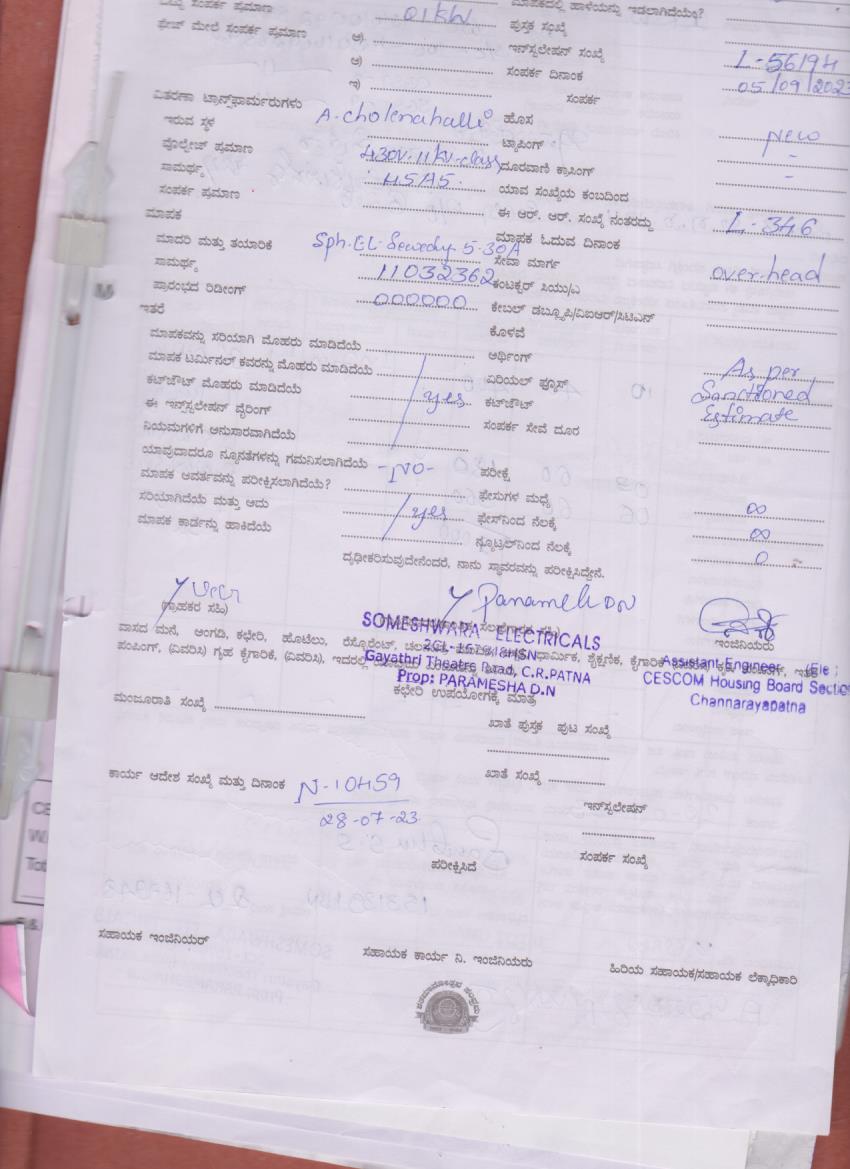 ಸಂಪರ್ಕ ಪ್ರಮಾಣ 01KW ಮಾಪಕದಲ್ಲಿ ಹಾಳೆಯನ್ನು ಇಡಲಾಗಿದೆಯೇ?
ಫೇಜ್ ಮೇಲೆ ಸಂಪರ್ಕ ಪ್ರಮಾಣ ಪುಸ್ತಕ ಸಂಖ್ಯೆ
ಇನ್‌ಸ್ಟಲೇಷನ್ ಸಂಖ್ಯೆ L-56194
ಸಂಪರ್ಕ ದಿನಾಂಕ 05/09/2023
ಇ) ಸಂಪರ್ಕ
ವಿತರಣಾ ಟ್ರಾನ್ಸ್‌ಫಾರ್ಮರುಗಳು
ಇರುವ ಸ್ಥಳ A-cholenahalli ಹೊಸ New
ವೊಲ್ಟೇಜ್ ಪ್ರಮಾಣ 430V-11KV-class ಟ್ಯಾಪಿಂಗ್ -
ಸಾಮರ್ಥ್ಯ ದೂರವಾಣಿ ಕ್ರಾಸಿಂಗ್ -
ಸಂಪರ್ಕ ಪ್ರಮಾಣ ಯಾವ ಸಂಖ್ಯೆಯ ಕಂಬದಿಂದ
ಮಾಪಕ ಈ ಆರ್. ಆರ್. ಸಂಖ್ಯೆ ನಂತರದ್ದು L-346
ಮಾಪಕ ಓದುವ ದಿನಾಂಕ
ಮಾದರಿ ಮತ್ತು ತಯಾರಿಕೆ Sph.EL-Sewedy-5-30A ಸೇವಾ ಮಾರ್ಗ over-head
ಸಾಮರ್ಥ್ಯ 11032362 ಕಂಟಕ್ಟರ್ ಸಿಯು/ಎ
ಪ್ರಾರಂಭದ ರಿಡೀಂಗ್ 000000 ಕೇಬಲ್ ಡಬ್ಲ್ಯೂಪಿ/ವಿಐಆರ್/ಸಿಟಿಎನ್
ಇತರೆ ಕೊಳವೆ
ಮಾಪಕವನ್ನು ಸರಿಯಾಗಿ ಮೊಹರು ಮಾಡಿದೆಯೆ ಅರ್ಥಿಂಗ್ As per
ಮಾಪಕ ಟರ್ಮಿನಲ್ ಕವರನ್ನು ಮೊಹರು ಮಾಡಿದೆಯೆ ಏರಿಯಲ್ ಫ್ಯೂಸ್ Sanctioned
ಕಟ್‌ಔಟ್ ಮೊಹರು ಮಾಡಿದೆಯೆ yes ಕಟ್‌ಔಟ್ Estimate
ಈ ಇನ್‌ಸ್ಟಲೇಷನ್ ವೈರಿಂಗ್ ಸಂಪರ್ಕ ಸೇವೆ ದೂರ
ನಿಯಮಗಳಿಗೆ ಅನುಸಾರವಾಗಿದೆಯೆ
ಯಾವುದಾದರೂ ನ್ಯೂನತೆಗಳನ್ನು ಗಮನಿಸಲಾಗಿದೆಯೆ -No- ಪರೀಕ್ಷೆ
ಮಾಪಕ ಆವರ್ತವನ್ನು ಪರೀಕ್ಷಿಸಲಾಗಿದೆಯೆ? ಫೇಸುಗಳ ಮಧ್ಯೆ ∞
ಸರಿಯಾಗಿದೆಯೆ ಮತ್ತು ಅದು yes ಫೇಸ್‌ನಿಂದ ನೆಲಕ್ಕೆ ∞
ಮಾಪಕ ಕಾರ್ಡನ್ನು ಹಾಕಿದೆಯೆ ನ್ಯೂಟ್ರಲ್‌ನಿಂದ ನೆಲಕ್ಕೆ 0
ದೃಢೀಕರಿಸುವುದೇನೆಂದರೆ, ನಾನು ಸ್ಥಾವರವನ್ನು ಪರೀಕ್ಷಿಸಿದ್ದೇನೆ.
Paramesh DN
(ಗ್ರಾಹಕರ ಸಹಿ) ಇಂಜಿನಿಯರು
SOMESHWARA ELECTRICALS
ವಾಸದ ಮನೆ, ಅಂಗಡಿ, ಕಛೇರಿ, ಹೊಟೆಲು, ರೆಸ್ಟೊರೆಂಟ್, ಧಾರ್ಮಿಕ, ಶೈಕ್ಷಣಿಕ, ಕೈಗಾರಿಕೆ
ಪಂಪಿಂಗ್, (ವಿವರಿಸಿ) ಗೃಹ ಕೈಗಾರಿಕೆ, (ವಿವರಿಸಿ), ಇದರಲ್ಲಿ
Gayathri Theatre Road, C.R.PATNA
Prop: PARAMESHA D.N
Assistant Engineer (Ele)
CESCOM Housing Board Section
Channarayapatna
ಕಛೇರಿ ಉಪಯೋಗಕ್ಕೆ ಮಾತ್ರ
ಮಂಜೂರಾತಿ ಸಂಖ್ಯೆ ಖಾತೆ ಪುಸ್ತಕ ಪುಟ ಸಂಖ್ಯೆ
ಕಾರ್ಯ ಆದೇಶ ಸಂಖ್ಯೆ ಮತ್ತು ದಿನಾಂಕ N-10459 ಖಾತೆ ಸಂಖ್ಯೆ
28-07-23 ಇನ್‌ಸ್ಟಲೇಷನ್
ಪರೀಕ್ಷಿಸಿದೆ ಸಂಪರ್ಕ ಸಂಖ್ಯೆ
ಸಹಾಯಕ ಇಂಜಿನಿಯರ್ ಸಹಾಯಕ ಕಾರ್ಯ ನಿ. ಇಂಜಿನಿಯರು ಹಿರಿಯ ಸಹಾಯಕ/ಸಹಾಯಕ ಲೆಕ್ಕಾಧಿಕಾರಿ